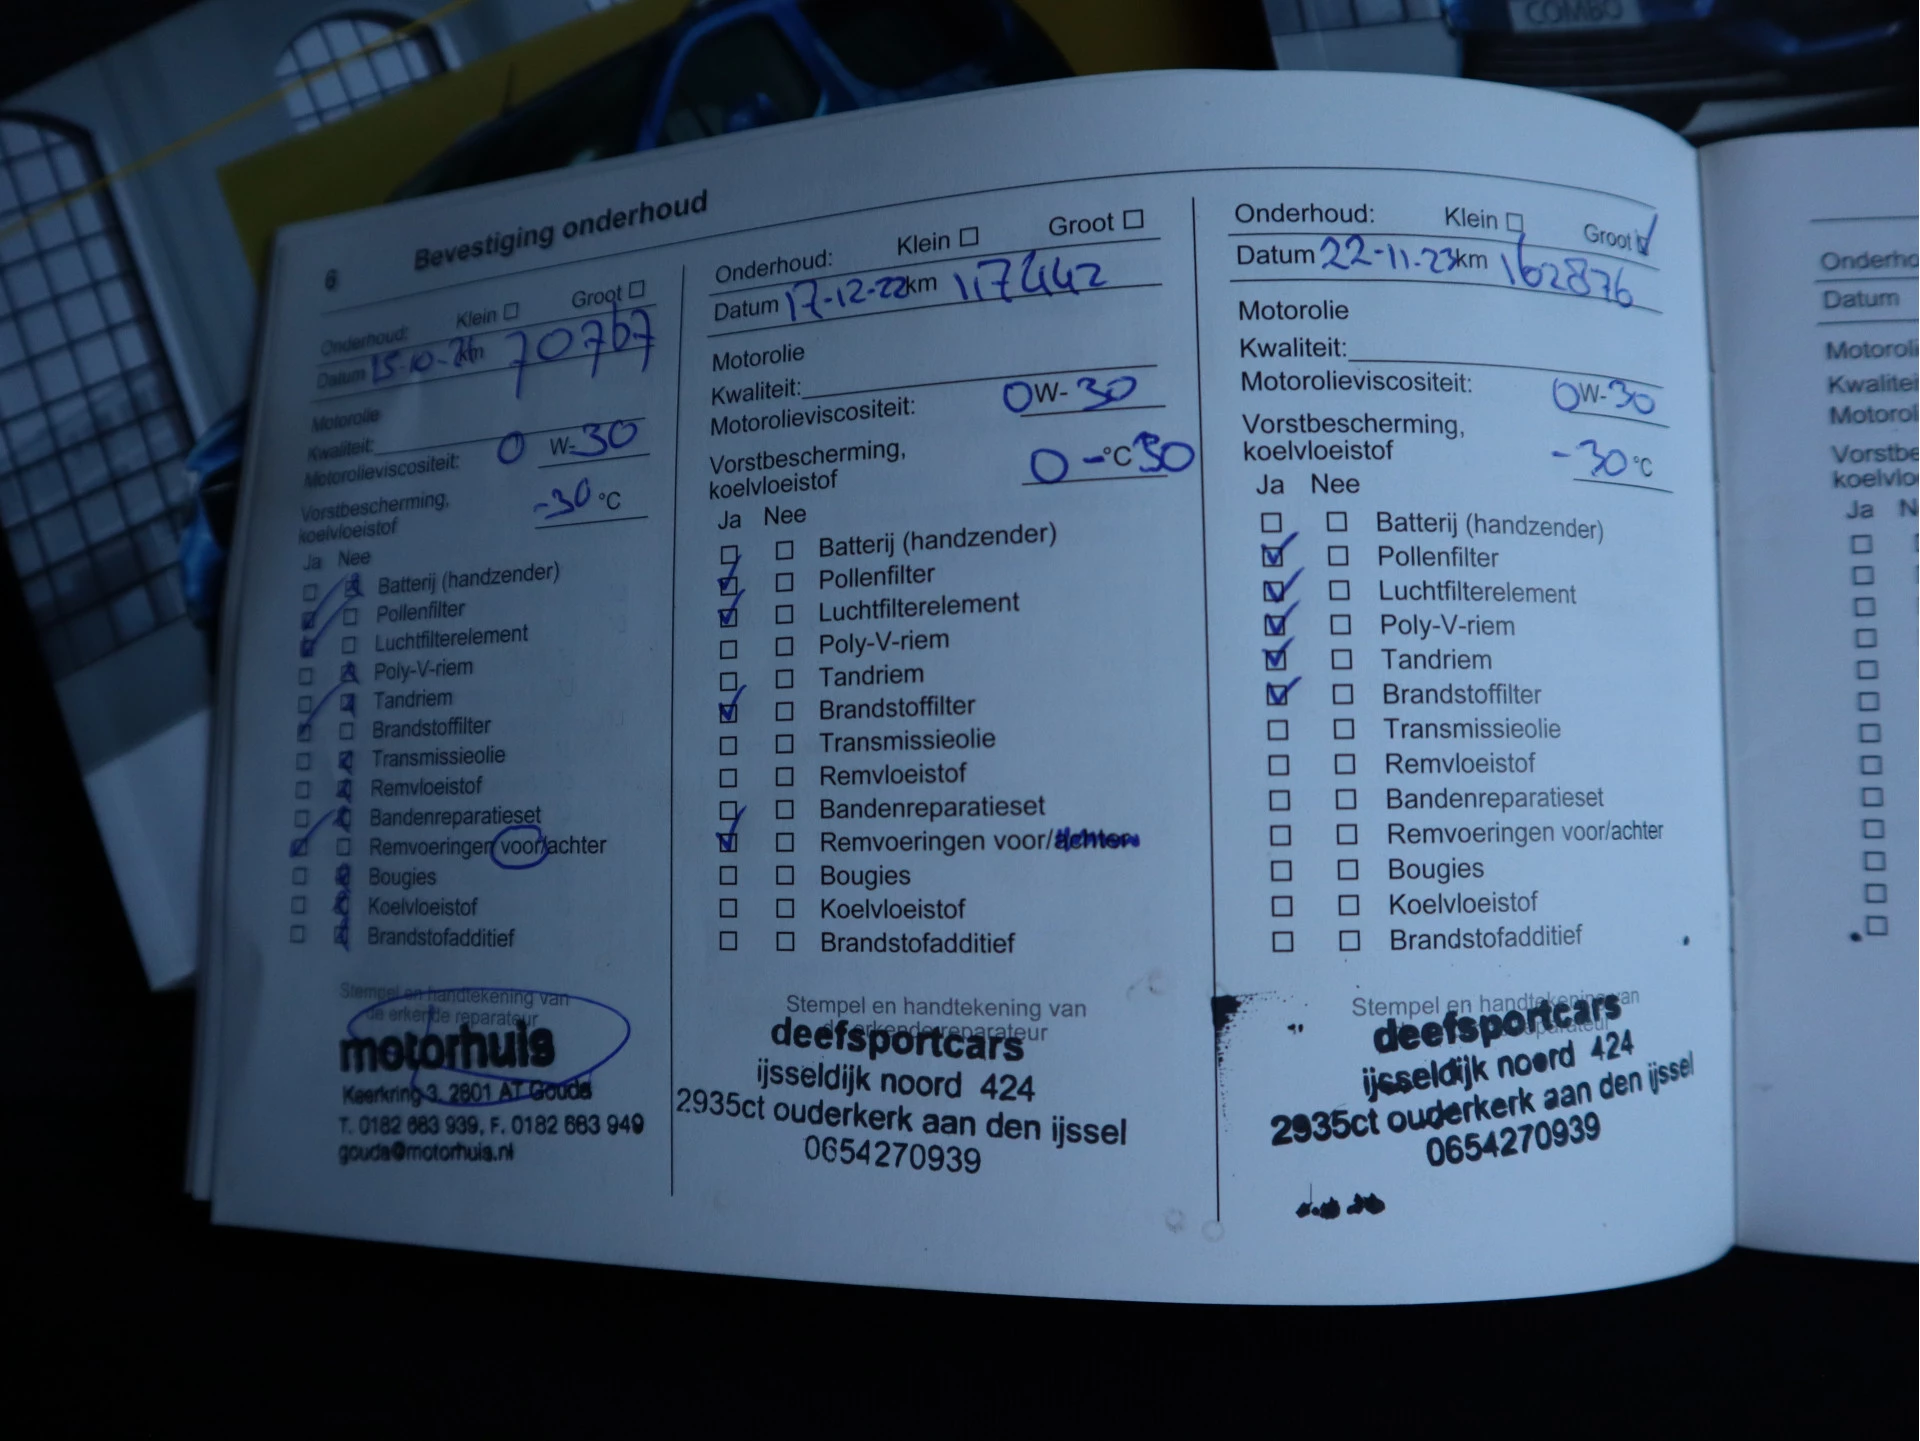 COMBO
6 Bevestiging onderhoud
Onderhoud: Klein Groot
Datum 15-10- km 70767
Motorolie
Kwaliteit:
Motorolieviscositeit: 0 W-30
Vorstbescherming,
koelvloeistof -30 °C
Ja Nee
Batterij (handzender)
Pollenfilter
Luchtfilterelement
Poly-V-riem
Tandriem
Brandstoffilter
Transmissieolie
Remvloeistof
Bandenreparatieset
Remvoeringen voor/achter
Bougies
Koelvloeistof
Brandstofadditief
Stempel en handtekening van
de erkende reparateur
motorhuis
Keerkring 3, 2801 AT Gouda
T. 0182 683 939, F. 0182 683 949
gouda@motorhuis.nl
Onderhoud: Klein Groot
Datum 17-12-22 km 117442
Motorolie
Kwaliteit:
Motorolieviscositeit: 0W-30
Vorstbescherming,
koelvloeistof 0 - °C 30
Ja Nee
Batterij (handzender)
Pollenfilter
Luchtfilterelement
Poly-V-riem
Tandriem
Brandstoffilter
Transmissieolie
Remvloeistof
Bandenreparatieset
Remvoeringen voor/achter
Bougies
Koelvloeistof
Brandstofadditief
Stempel en handtekening van
de erkende reparateur
deefsportcars
ijsseldijk noord 424
2935ct ouderkerk aan den ijssel
0654270939
Onderhoud: Klein Groot
Datum 22-11-23 km 162876
Motorolie
Kwaliteit:
Motorolieviscositeit: 0W-30
Vorstbescherming,
koelvloeistof -30 °C
Ja Nee
Batterij (handzender)
Pollenfilter
Luchtfilterelement
Poly-V-riem
Tandriem
Brandstoffilter
Transmissieolie
Remvloeistof
Bandenreparatieset
Remvoeringen voor/achter
Bougies
Koelvloeistof
Brandstofadditief
Stempel en handtekening van
reparateur
deefsportcars
ijsseldijk noord 424
2935ct ouderkerk aan den ijssel
0654270939
Onderho
Datum
Motoroli
Kwalitei
Motorol
Vorstbe
koelvlo
Ja N